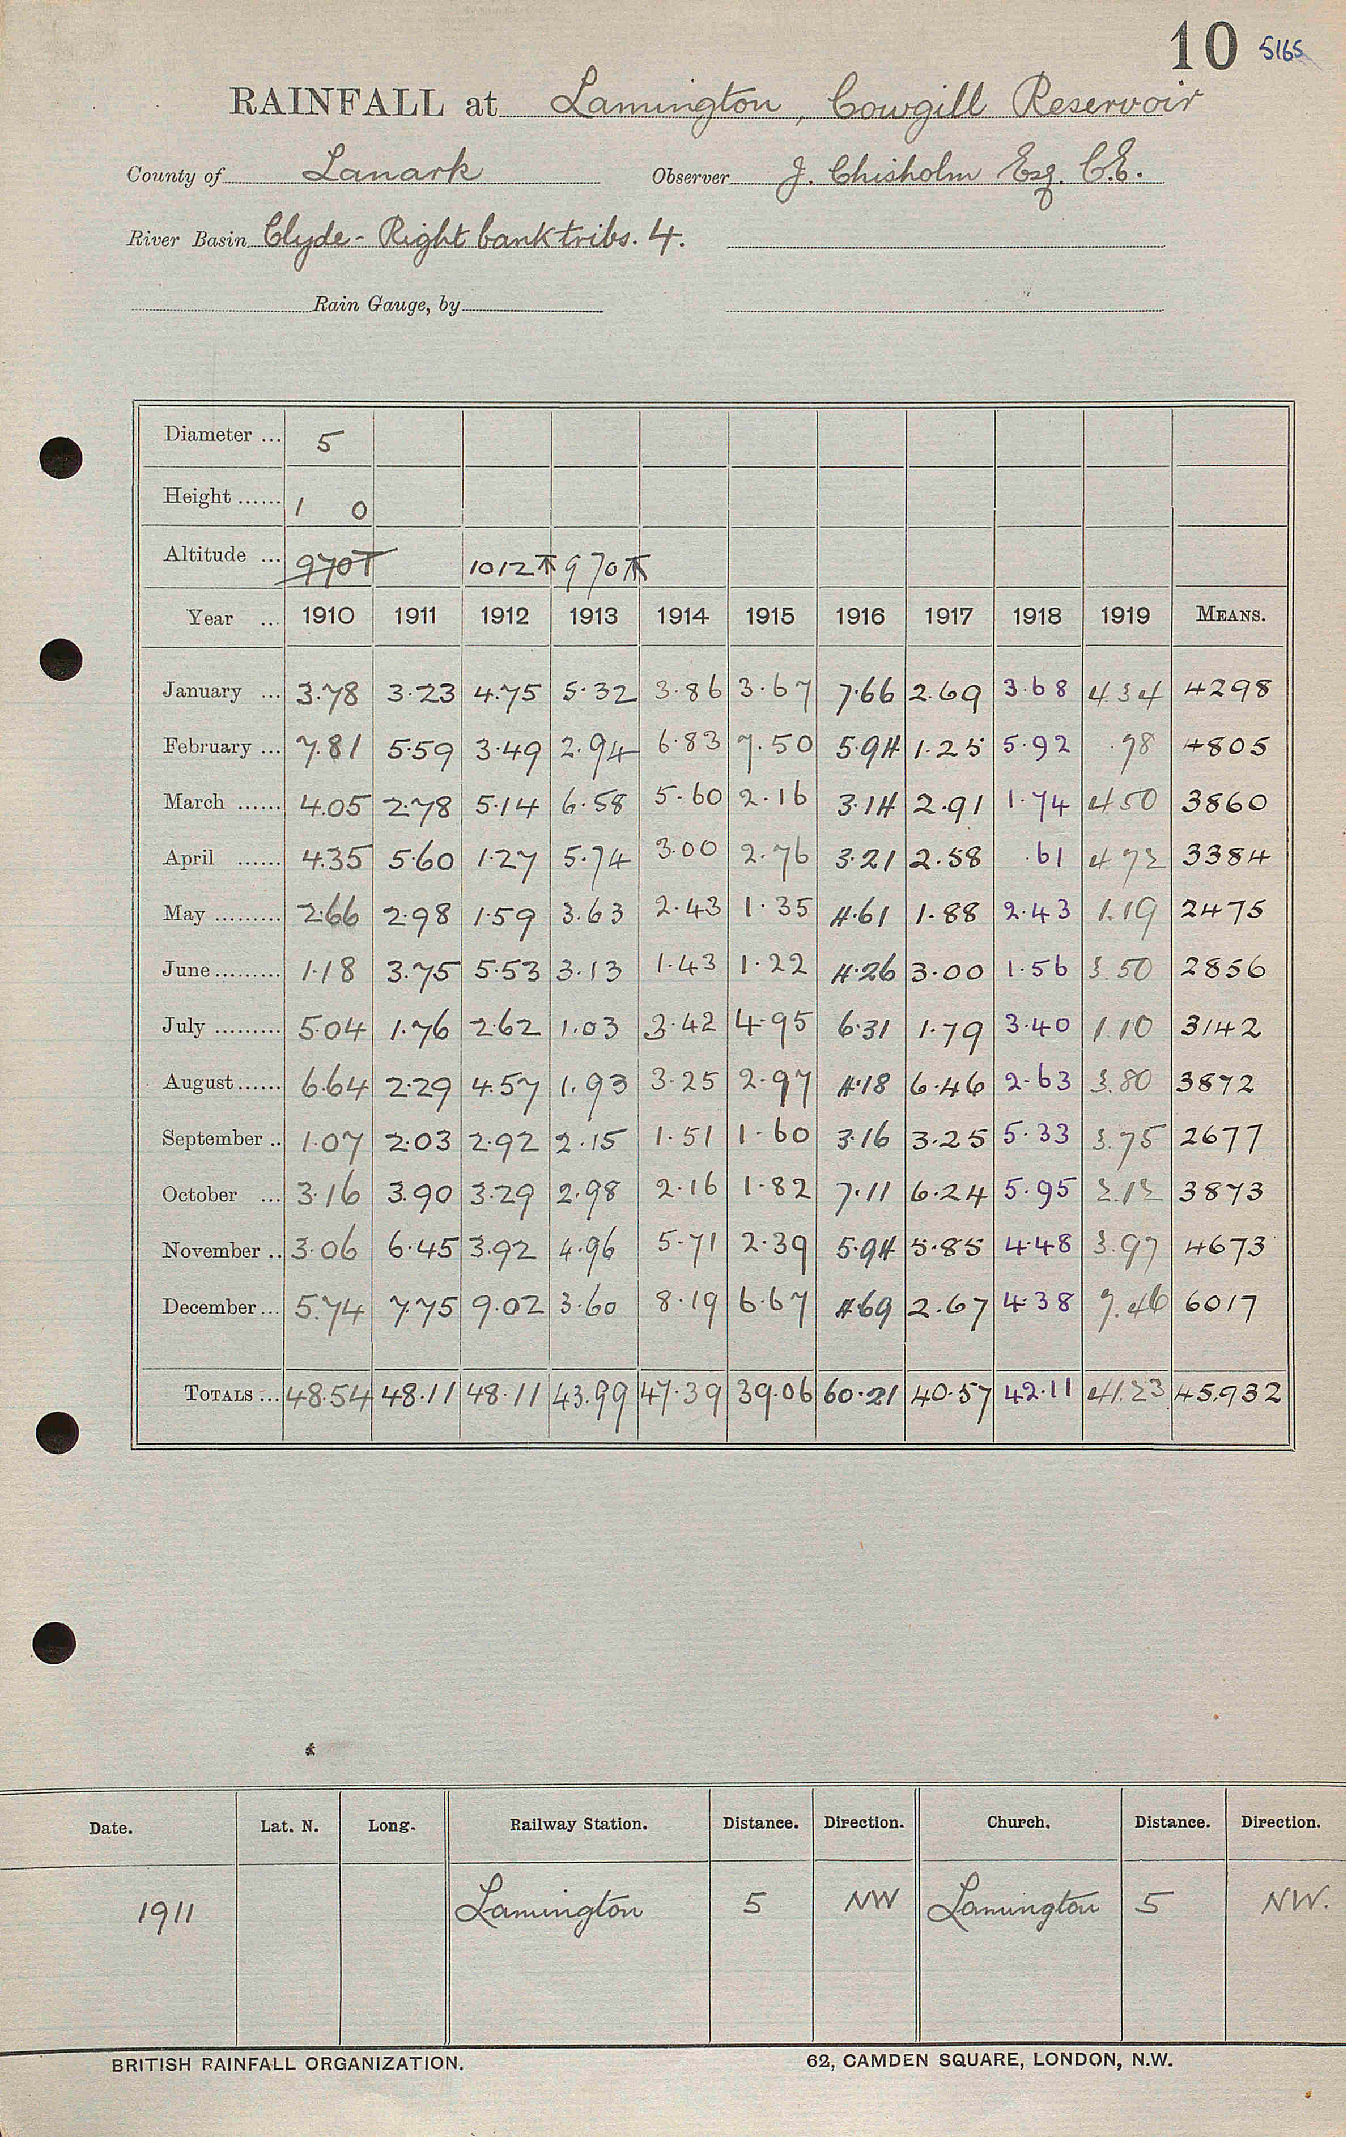 10 5165
RAINFALL at Lamington, Cowgill Reservoir
County of Lanark Observer J. Chisholm Esq. C.E.
River Basin Clyde - Right bank tribs. 4.
Rain Gauge, by
Diameter ... 5
Height ...... 1 0
Altitude ... 970T 1012T 970T
Year ... 1910 1911 1912 1913 1914 1915 1916 1917 1918 1919 MEANS.
January ... 3.78 3.23 4.75 5.32 3.86 3.67 7.66 2.69 3.68 4.34 4298
February ... 7.81 5.59 3.49 2.94 6.83 7.50 5.94 1.25 5.92 .78 4805
March ...... 4.05 2.78 5.14 6.58 5.60 2.16 3.14 2.91 1.74 4.50 3860
April ...... 4.35 5.60 1.27 5.74 3.00 2.76 3.21 2.58 .61 4.72 3384
May ......... 2.66 2.98 1.59 3.63 2.43 1.35 4.61 1.88 2.43 1.19 2475
June......... 1.18 3.75 5.53 3.13 1.43 1.22 4.26 3.00 1.56 3.50 2856
July ......... 5.04 1.76 2.62 1.03 3.42 4.95 6.31 1.79 3.40 1.10 3142
August...... 6.64 2.29 4.57 1.93 3.25 2.97 4.18 6.46 2.63 3.80 3872
September .. 1.07 2.03 2.92 2.15 1.51 1.60 3.16 3.25 5.33 3.75 2677
October ... 3.16 3.90 3.29 2.98 2.16 1.82 7.11 6.24 5.95 2.12 3873
November .. 3.06 6.45 3.92 4.96 5.71 2.39 5.94 5.85 4.48 3.97 4673
December... 5.74 7.75 9.02 3.60 8.19 6.67 4.69 2.67 4.38 7.46 6017
TOTALS ... 48.54 48.11 48.11 43.99 47.39 39.06 60.21 40.57 42.11 41.23 45.932
Date. Lat. N. Long. Railway Station. Distance. Direction. Church. Distance. Direction.
1911 Lamington 5 NW Lamington 5 NW.
BRITISH RAINFALL ORGANIZATION. 62, CAMDEN SQUARE, LONDON, N.W.